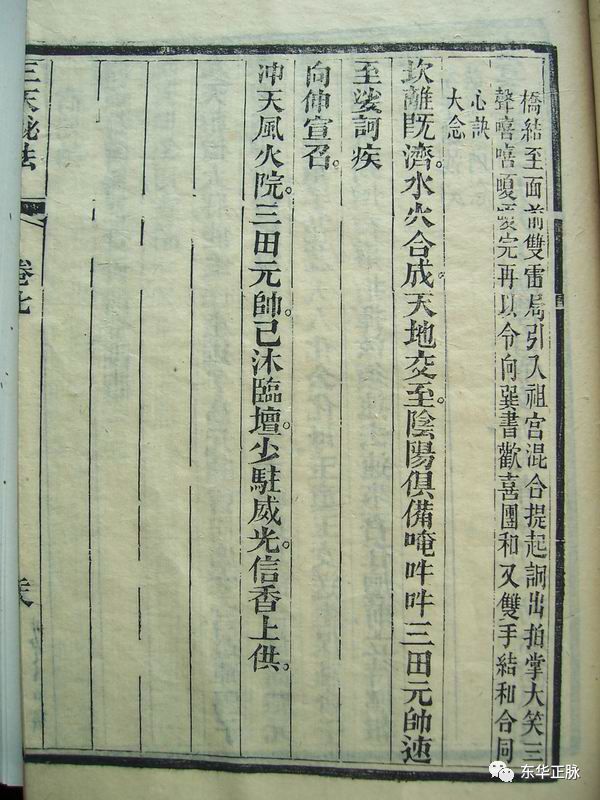 橋結至面前雙雷局引入祖宮混合提起訶出拍掌大笑三
聲嘻嘻嗄嗄完再以令向巽書歡喜團和又雙手結和合同
心訣
大念
坎離既濟。水火合成。天地交至。陰陽俱備唵吽吽三田元帥速
至娑訶疾
向伸宣召。
冲天風火院。三田元帥。已沐臨壇。少駐威光。信香上供。
三天秘法
卷七
东华正脉